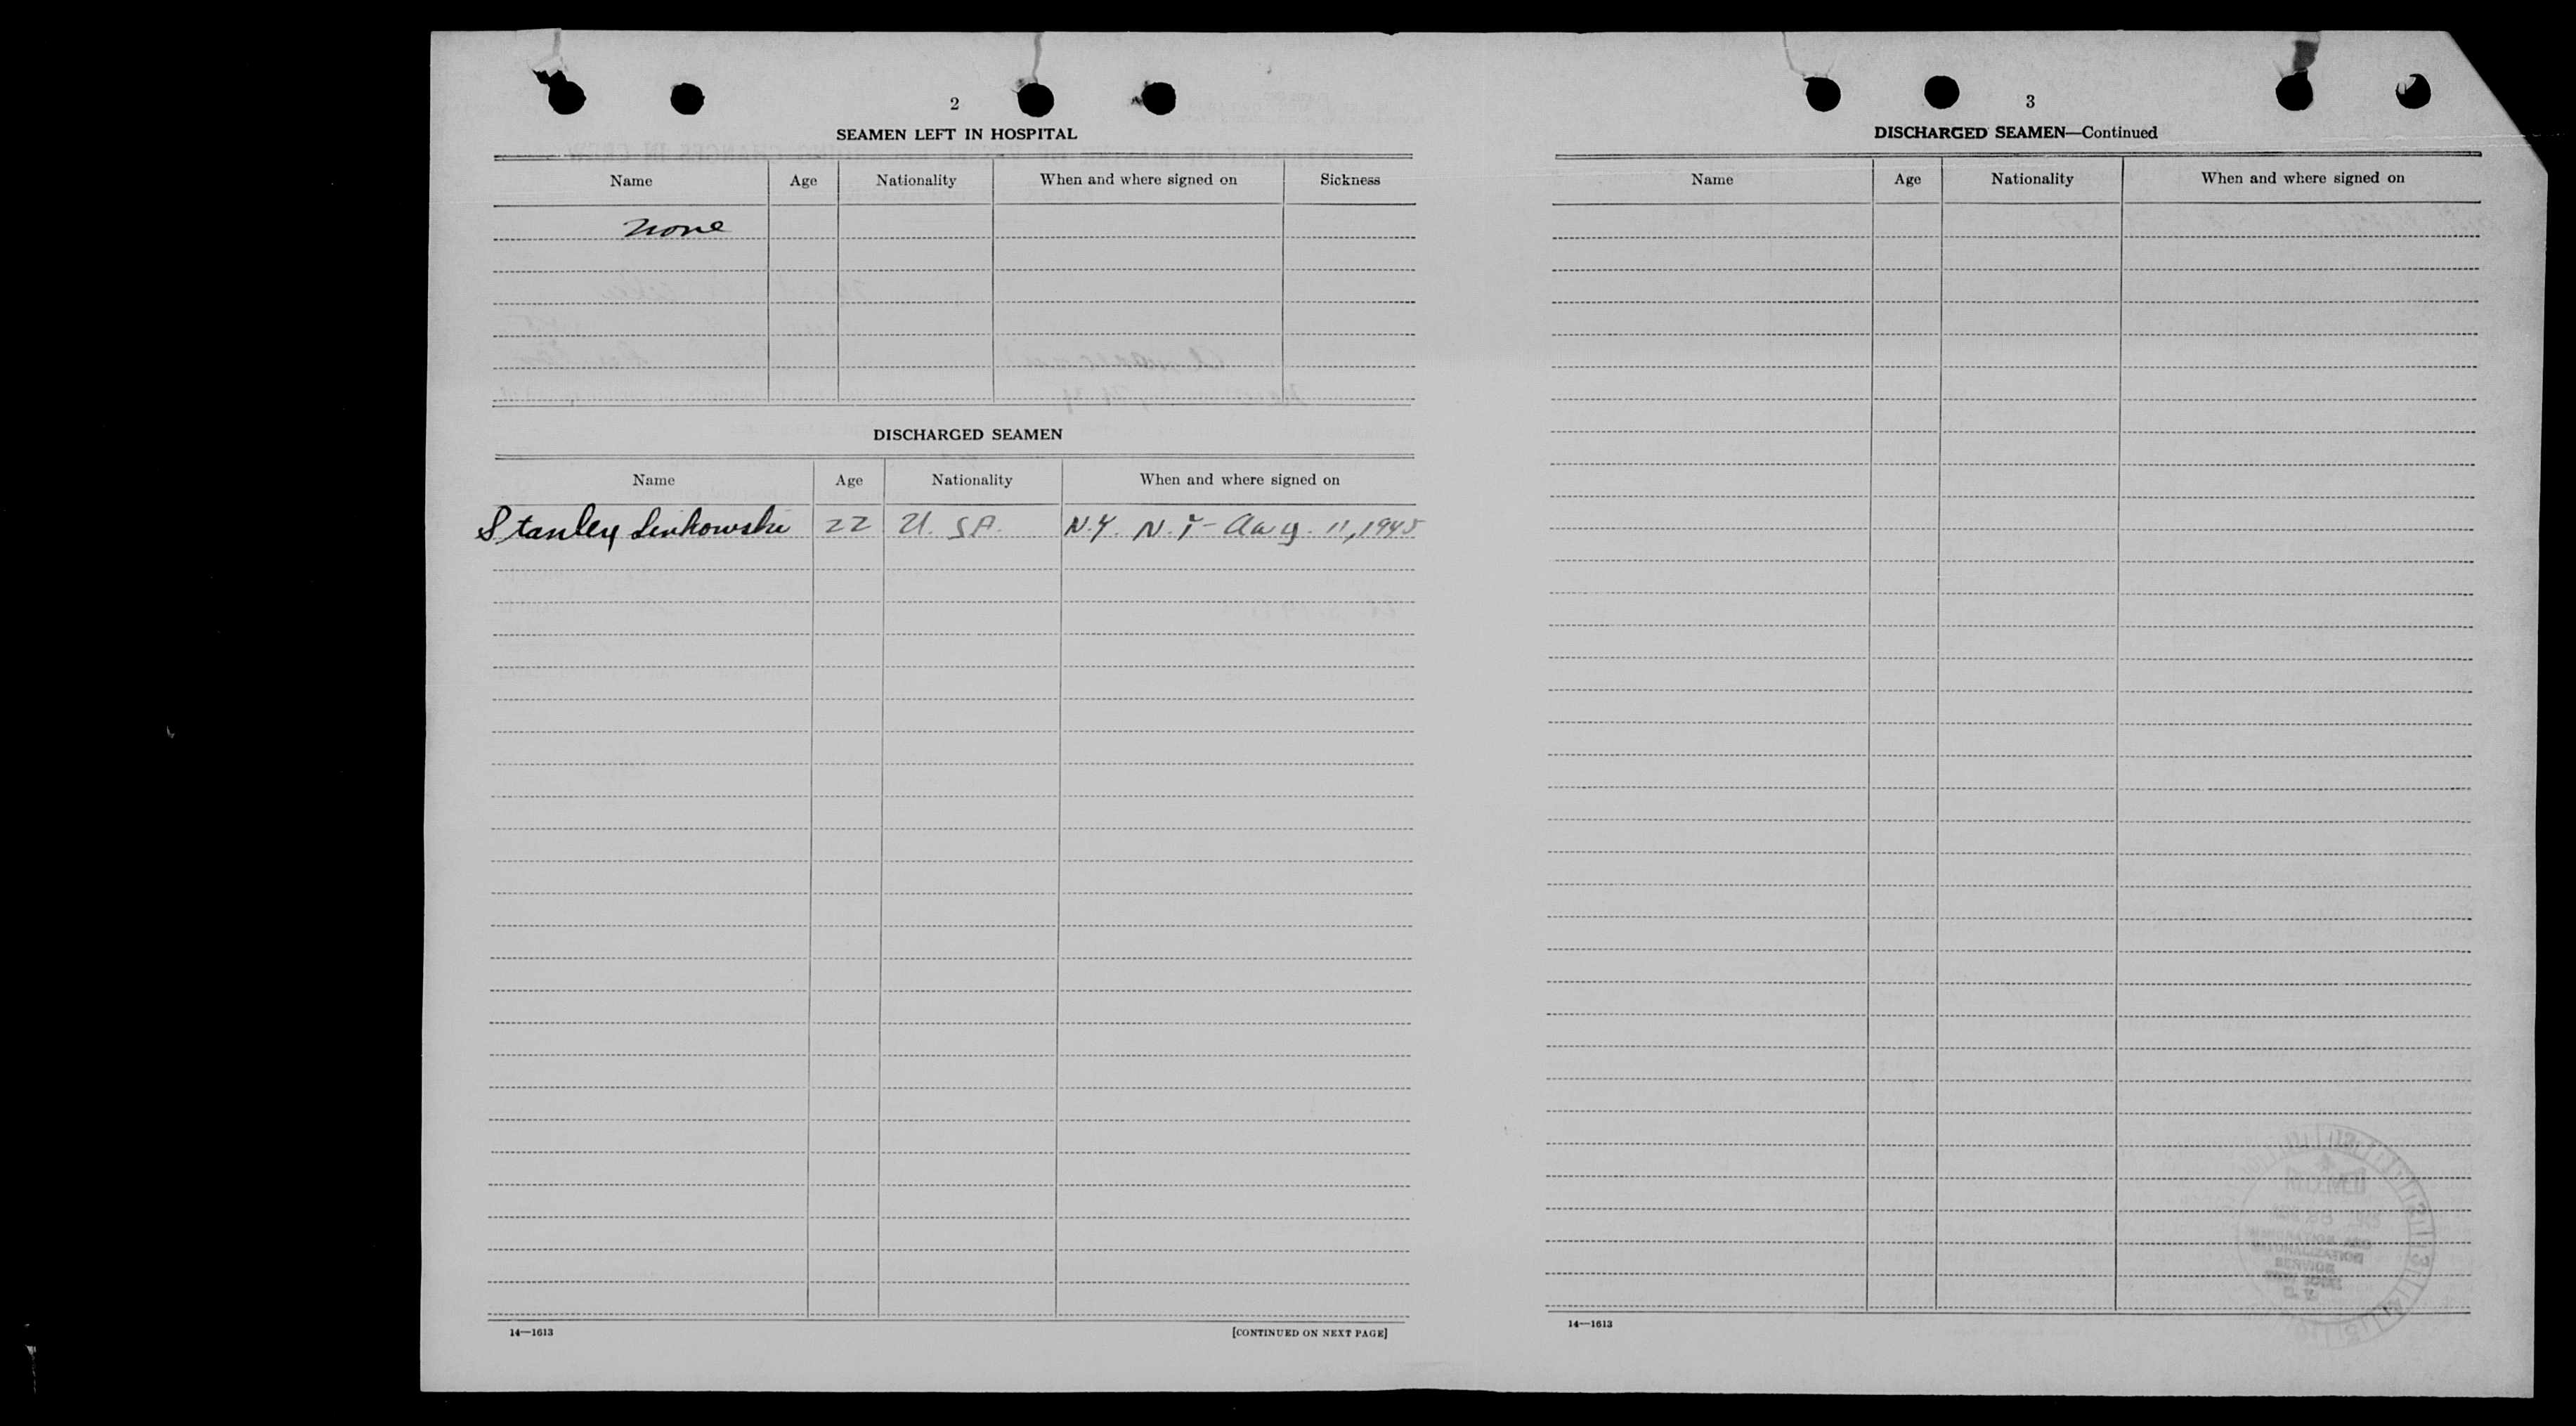 2
SEAMEN LEFT IN HOSPITAL
Name Age Nationality When and where signed on Sickness
None
DISCHARGED SEAMEN
Name Age Nationality When and where signed on
Stanley 22 U. SA. N.Y. N.Y- Aug. 11, 1945
14—1613
[CONTINUED ON NEXT PAGE]
3
DISCHARGED SEAMEN—Continued
Name Age Nationality When and where signed on
IMMIGRATION AND
NATURALIZATION
SERVICE
14—1613